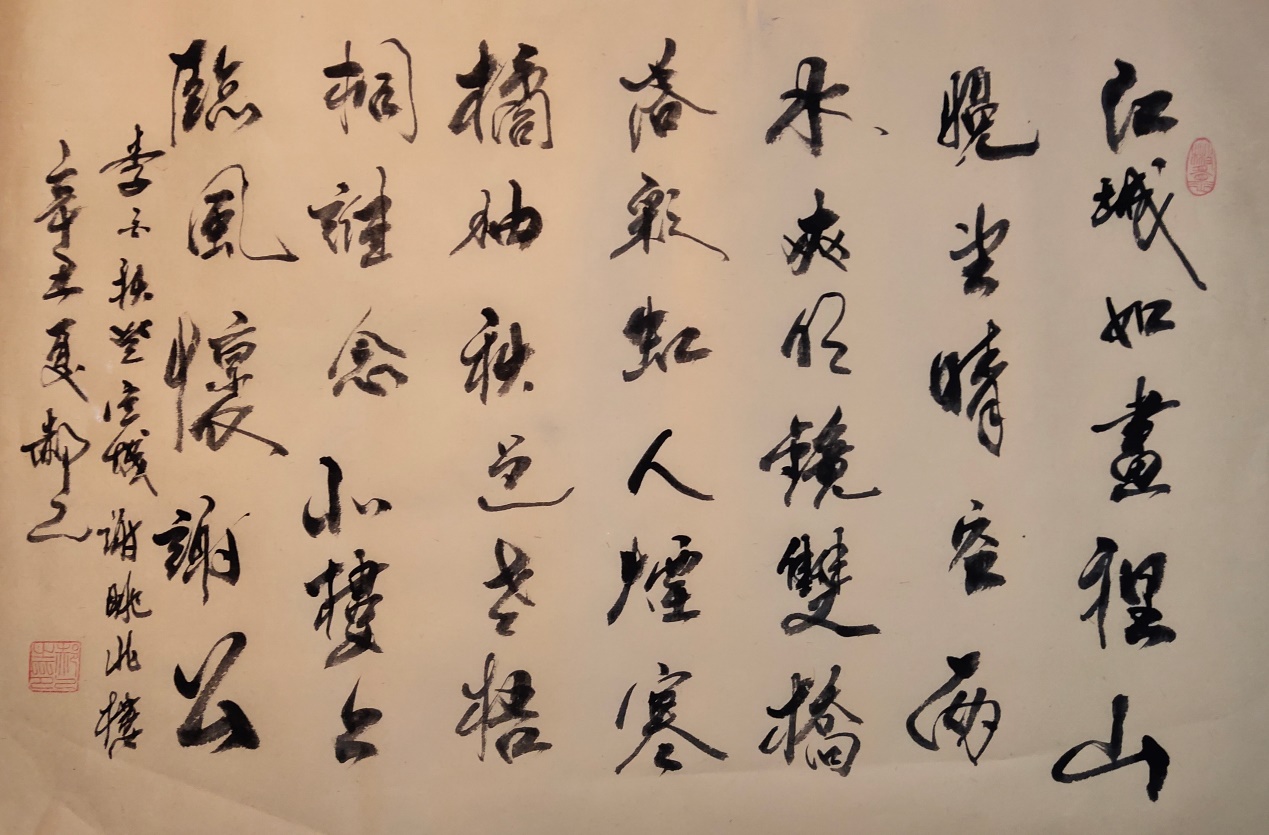 江城如畫裡山
晚望晴空兩
水夾明鏡雙橋
落彩虹人煙寒
橘柚秋色老梧
桐誰念北樓上
臨風懷謝公
李白秋登宣城謝朓北樓
辛丑夏郝